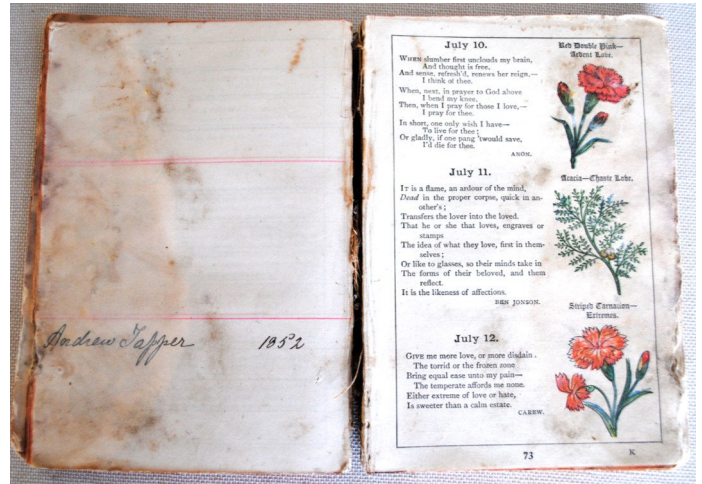 Andrew Tapper 1852
July 10.
Red Double Pink—
Ardent Love.
WHEN slumber first unclouds my brain,
And thought is free,
And sense, refresh'd, renews her reign,—
I think of thee.
When, next, in prayer to God above
I bend my knee,
Then, when I pray for those I love,—
I pray for thee.
In short, one only wish I have—
To live for thee;
Or gladly, if one pang 'twould save,
I'd die for thee.
ANON.
July 11.
Acacia—Chaste Love.
IT is a flame, an ardour of the mind,
Dead in the proper corpse, quick in an-
other's;
Transfers the lover into the loved.
That he or she that loves, engraves or
stamps
The idea of what they love, first in them-
selves;
Or like to glasses, so their minds take in
The forms of their beloved, and them
reflect.
It is the likeness of affections.
BEN JONSON.
Striped Carnation—
Extremes.
July 12.
GIVE me more love, or more disdain.
The torrid or the frozen zone
Bring equal ease unto my pain—
The temperate affords me none.
Either extreme of love or hate,
Is sweeter than a calm estate.
CAREW.
73
K